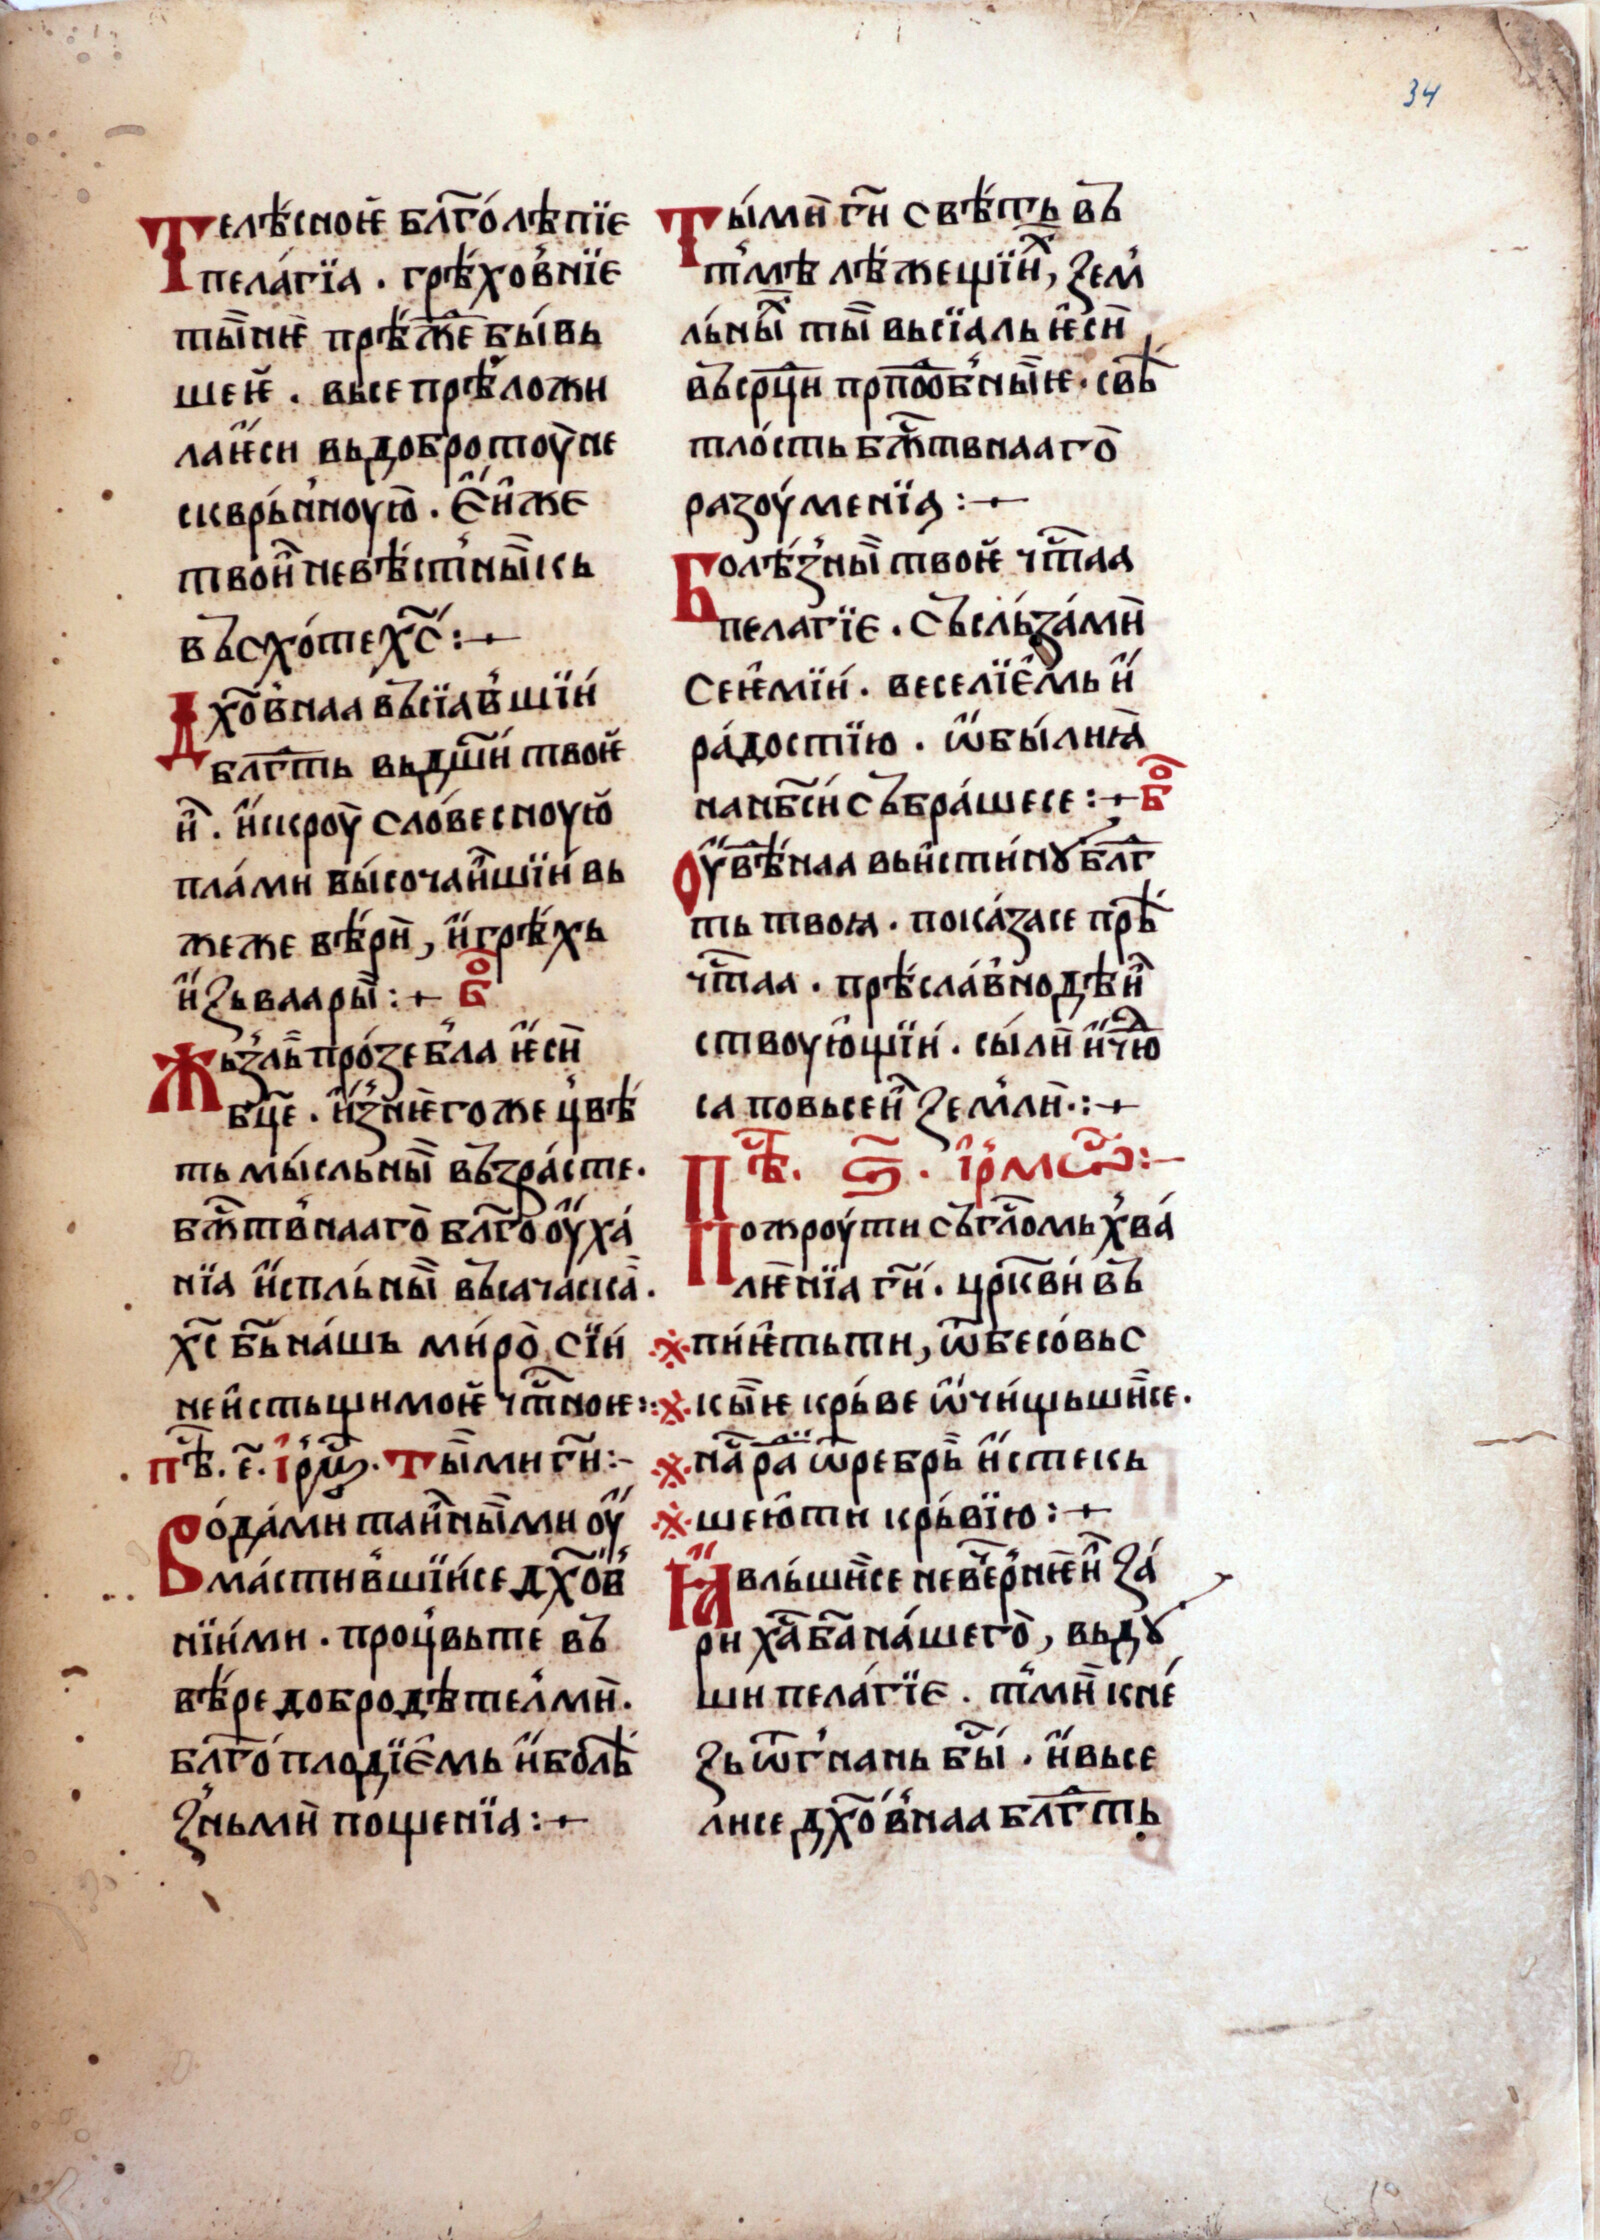 34
Телѣ́сноѥ бл҃го́лѣпїе
пела́гїа . грѣ́хов̾нїе
ты̏нѥ прѣ́ж҇е бы́вь
шеѥ . вьсе прѣ̾ложи
лаѥси вьдобротоу̀не
сквры́н̾ноую̀ . Е҆и҆же
твои҆ невѣ́ст̾ны̏ксь
въсхо́те х҃с :⁘
Дх҃ов̾наа въсїав̾шїи́
блг҇ть вьдш҃и́ твоѥ
и҆ . и҆скроу̀ сло́весноую̀
пла́мы вы́сочаи҆шїи́ вь
жеже вѣ́рѝ, и҆грѣ́хь
и҆зьваары̏ :⁘ бо
Жьз̾ль про́зебла ѥ҆сѝ
бц҃е . и҆з̾нѥ̀гоже цв̾ѣ́
ть мы́сльны̏ въ́зра́сте .
бж҇тв̾нааго̀ бл҃гооу҆ха́
нїа и҆спль́ны̏ въсачаска̀ .
х҃с бь҃ на́шь ми́ро̀ сїи́
неи҆стьщимоѥ ч҇тноѥ :
пѣ҇ . е҃ . і҆рм҇ . Ты̏ми гн҃и :–
Во́дами таи҆ны̏ми оу҆
ма́стив̾шїи́се дх҃ов̾
нїи́ми . процв̾ьте въ
вѣ́ре добродѣтел̾мѝ .
бл҃го́плодїе҆мь и҆болѣ́
з̾ньмѝ пощенїа :⁘
Ты́мѝ гн҃и свѣ́ть въ
т̾мѣ лѣ́жещїи҆х, зем̾
ль́ны̏х ты̏ вьсїаль ѥ҆сѝ
въсрц҃и прпⷣоб̾ны̏ѥ . свѣ́
тло́сть бж҇твнааго̀
разоу́менїа :⁘
Болѣ́з̾ны̏ твоѥ ч҇таа
пелагїе . съ́сльза́мѝ
сеѥ҆мїи́ . веселїе҆мь и҆
ра́достїю . ѡ҆бы́лнꙗ̀
нанб҃си́ съ́бра́шесе :⁘ бо
Оу҆вѣ́наа вьи҆сти́нꙋ блг҇
ть твоꙗ . пока́засе прѣ́
ч҇таа . прѣ́сла́в̾нодѣи҆
ствоую҆щїи́ . сы́лѝ и҆чю҇д
са повьсеи҆ зем̾лѝ .:⁘
Пѣ҇ . ѕ҃ . і҆рмѡс҇ :–
Пожроу́ти съ́гл҃омь х̾ва́
лѥ̀нїа гн҃и́ . црк҃ви́ въ
пи́ѥ҆тьти, ѿбесо́вьс
кы̏ѥ кры́ве ѡ҆чи́щьшѝсе .
на҇ра̏ ѿребрь̀ и҆стекь
шею҆ти кры́вїю :⁘
Ꙗ҆вль́шѝсе невѐр̾нѥи҆ за́
ри х҃а б҃а на́шего̀, вьдꙋ
ши пела́гїе . т̾мѝ кне́
зь ѿг̾нань бы҇ . и҆вьсе
лисе дх҃ов̾наа блг҇ть